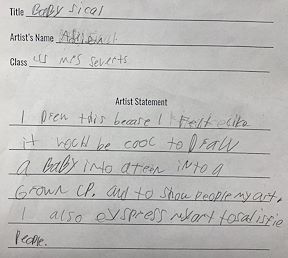 Title BaBy sical
Artist's Name
Class mrs Severts
Artist Statement
I Drew this becase I Felt like
it would be cool to DraW
a BaBy into a teen into a
Grown UP. and to show people my art.
I also exspress my art to satisfie
People.